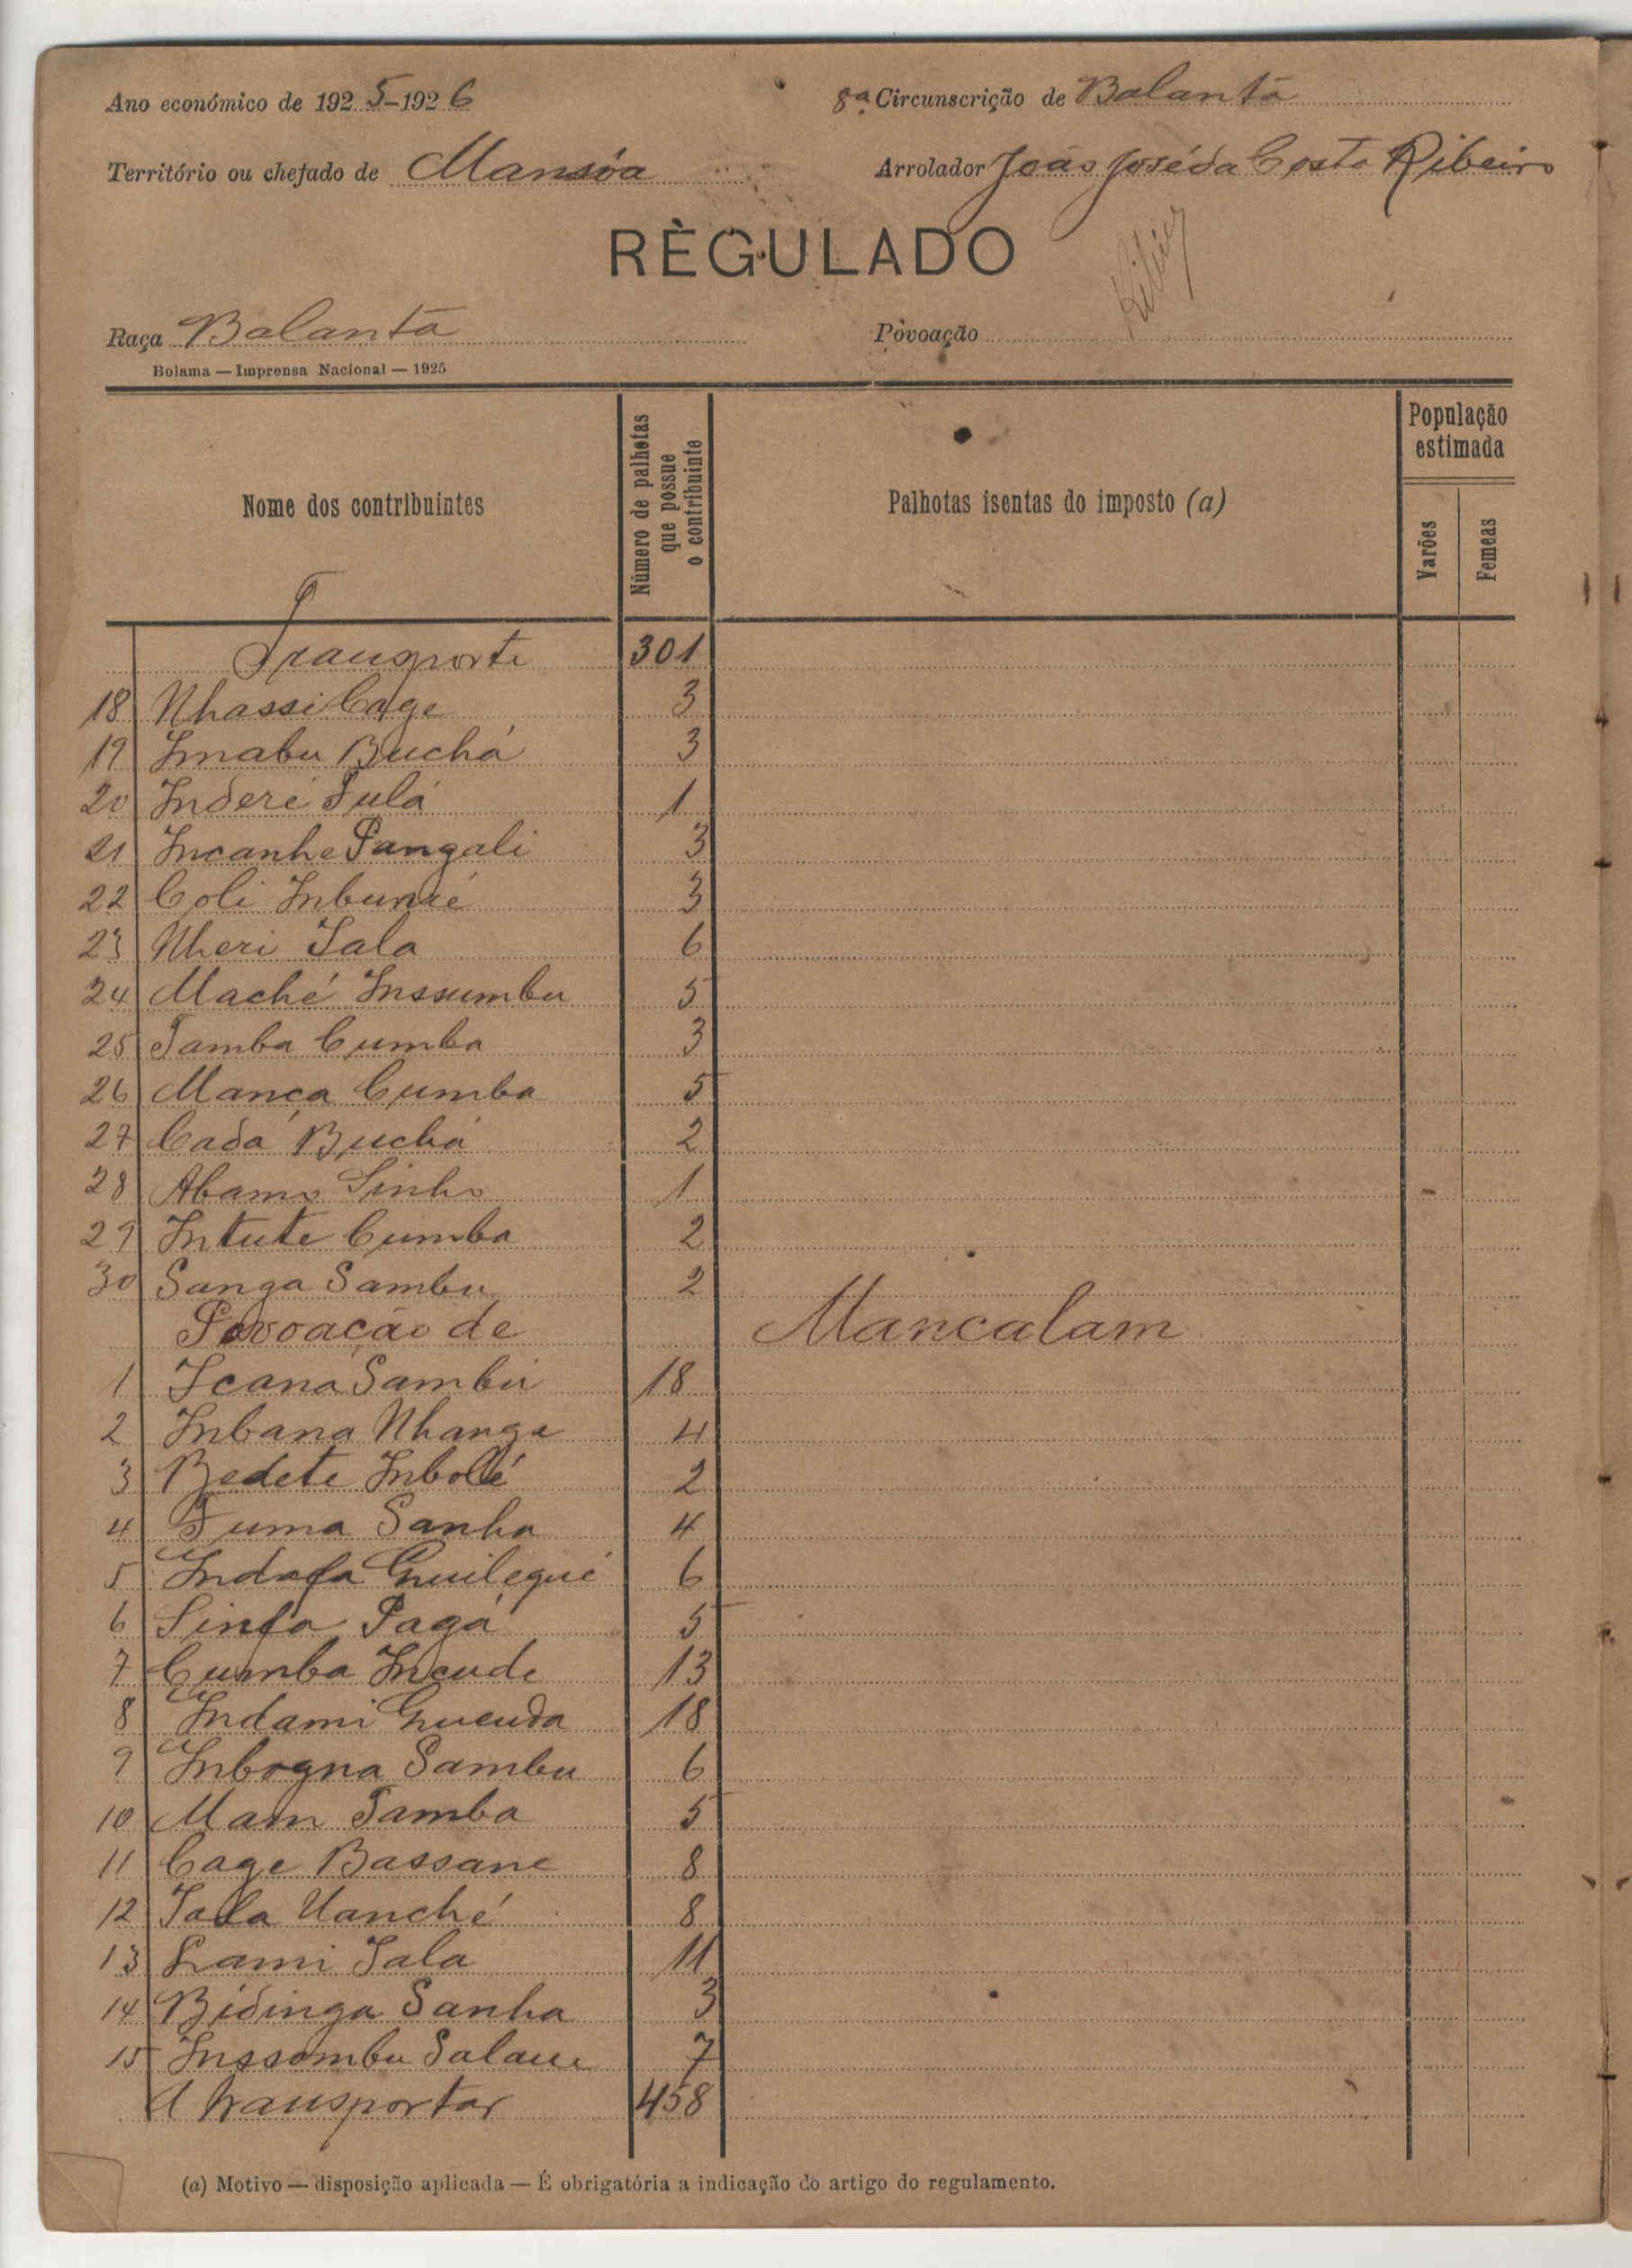 Ano económico de 1925-1926
8ª Circunscrição de Balanta
Território ou chefado de Mansôa
Arrolador João José da Costa Ribeiro
RÈGULADO
Raça Balanta
Pòvoação
Bolama — Imprensa Nacional — 1925
Nome dos contribuintes
Número de palhotas que possue o contribuinte
Palhotas isentas do imposto (a)
População estimada
Varões
Femeas
Transporte 301
18 Nhassi Cage 3
19 Inabu Buchá 3
20 Inderé Sulá 1
21 Incanhe Pangali 3
22 Coli Inbunxé 3
23 Nheri Tala 6
24 Maché Inssumbu 5
25 Tamba Cumba 3
26 Manca Cumba 5
27 Cadá Buchá 2
28 Abamo Sinho 1
29 Intute Cumba 2
30 Sanga Sambu 2
Povoação de Mancalam
1 Icana Sambú 18
2 Inbana Nhanga 4
3 Bedete Inbollé 2
4 Tuma Sanha 4
5 Indafa Guilequé 6
6 Sinfa Pagá 5
7 Cumba Incude 13
8 Indami Guenda 18
9 Inbogna Sambu 6
10 Mam Tamba 5
11 Cage Bassane 8
12 Tala Uanché 8
13 Lami Tala 11
14 Bidinga Sanha 3
15 Inssombu Salaue 7
A transportar 458
(a) Motivo — disposição aplicada — É obrigatória a indicação do artigo do regulamento.